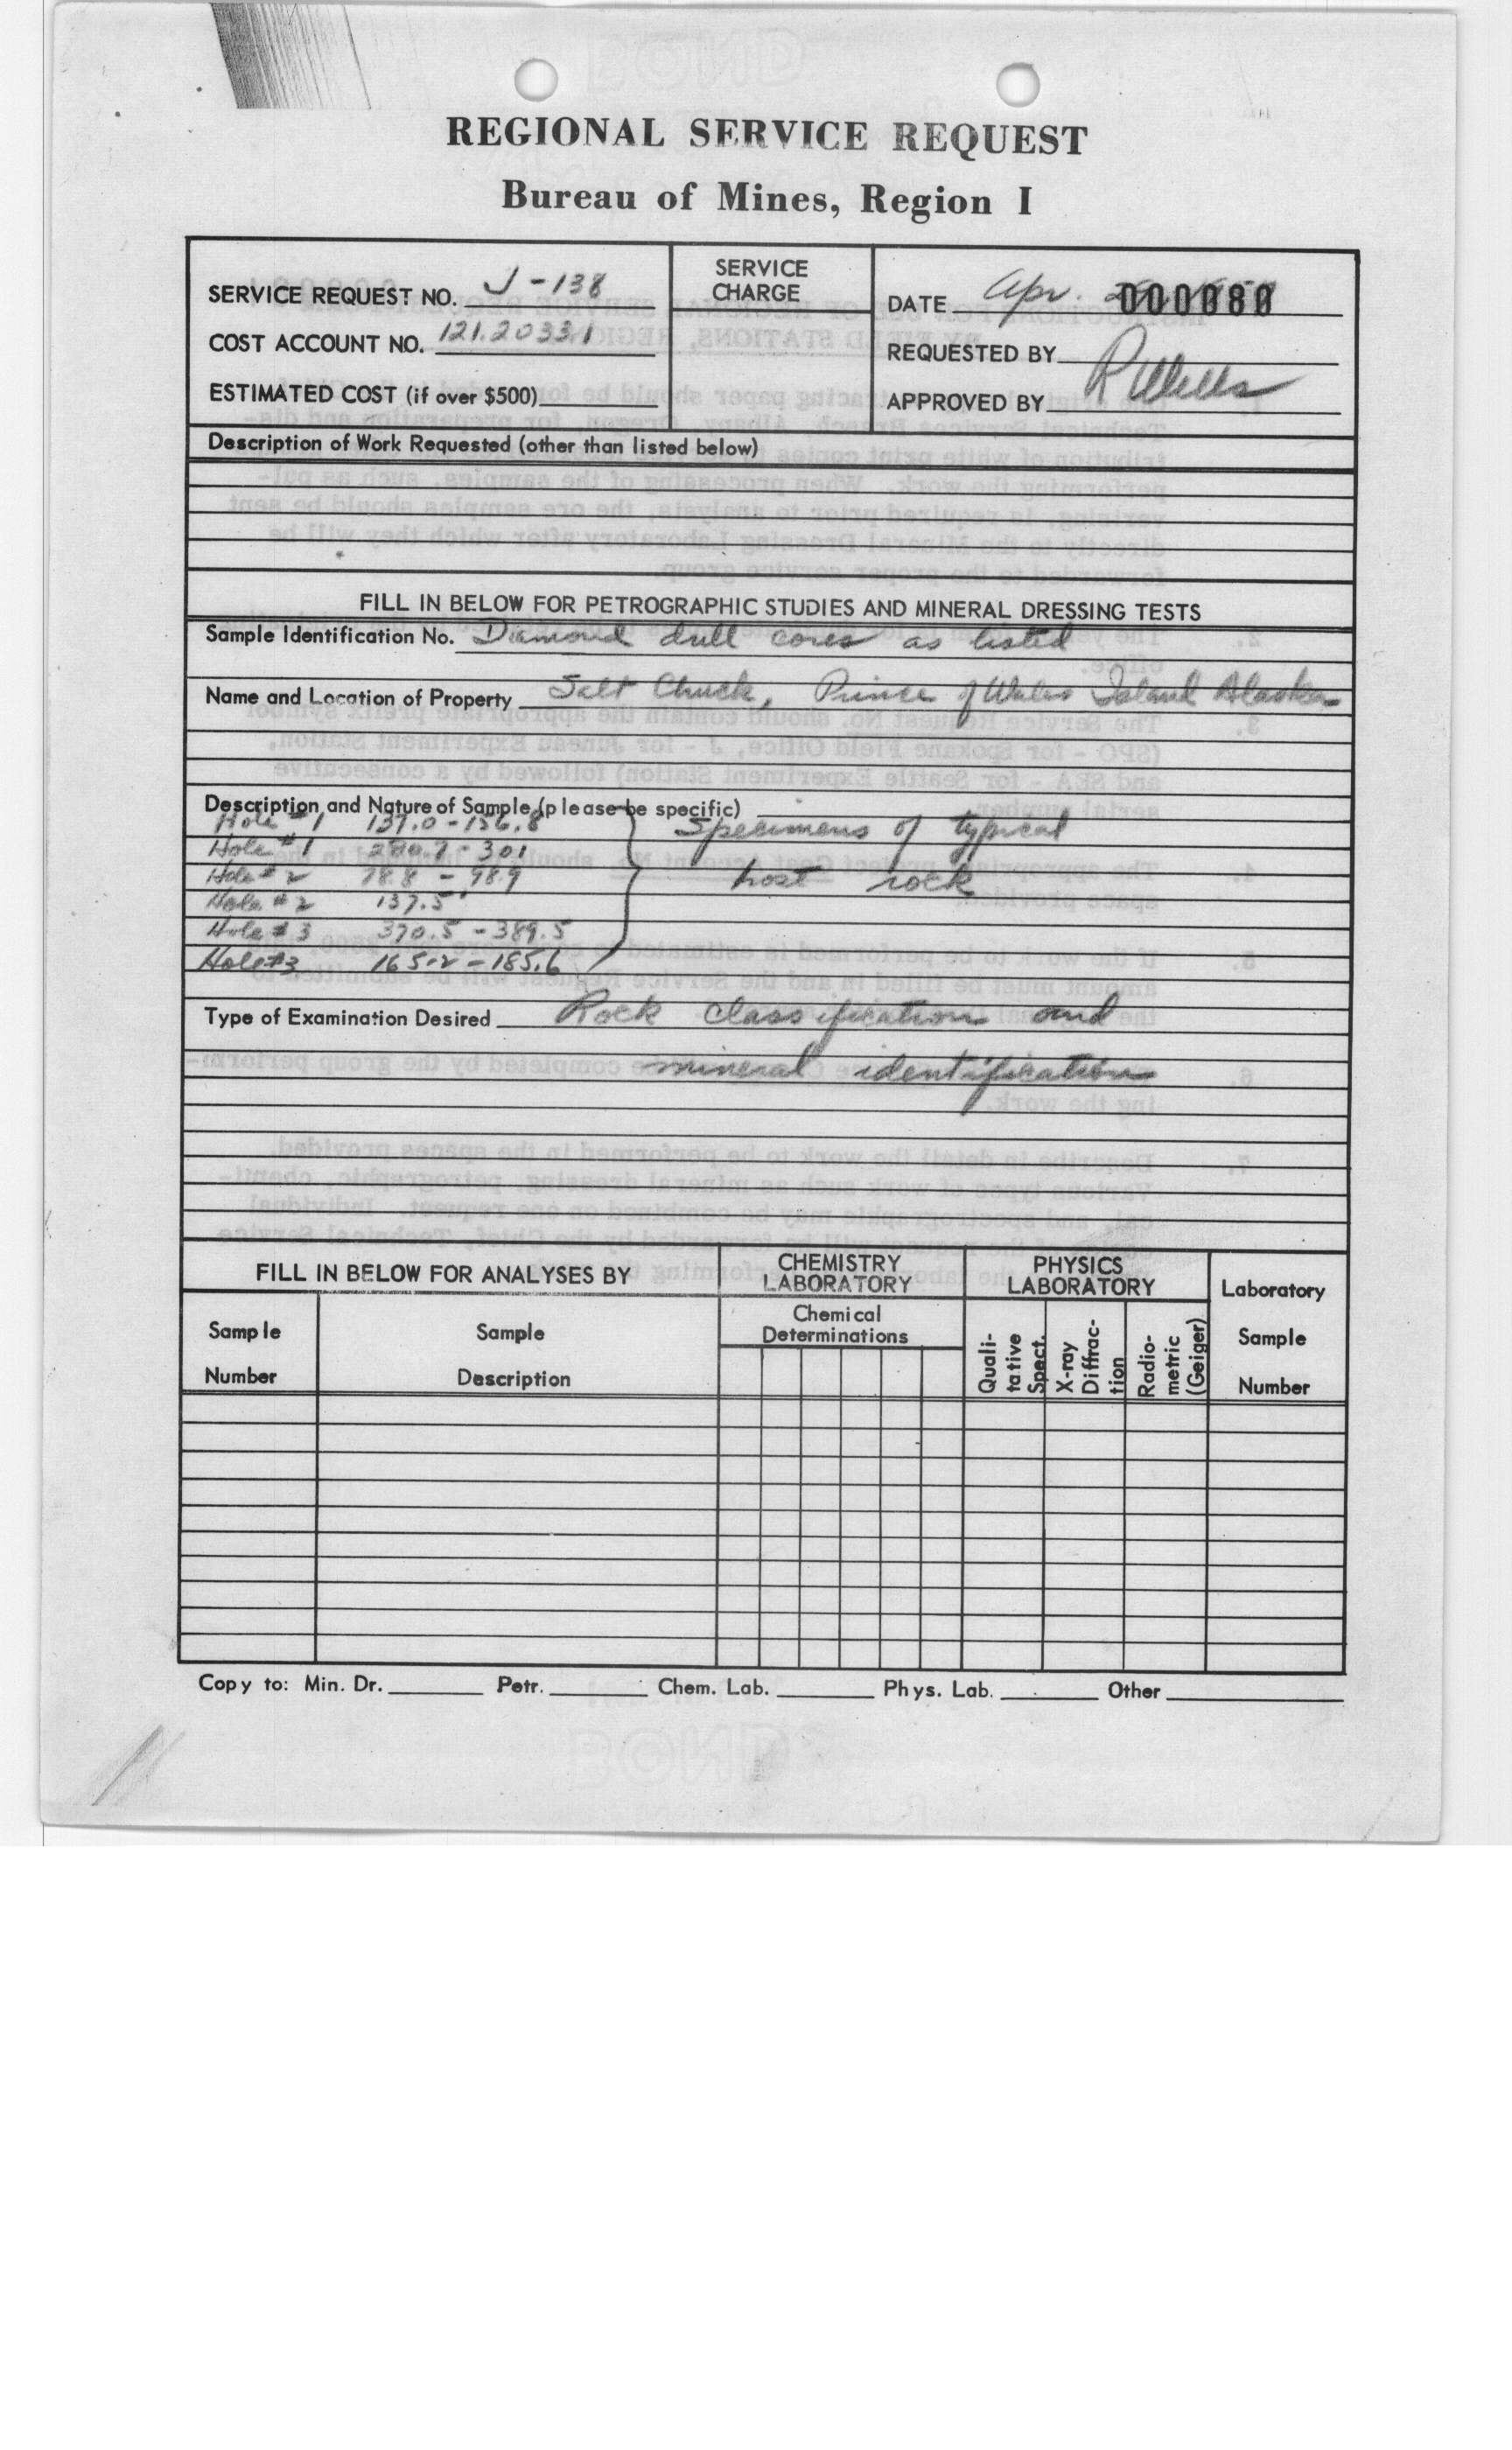 REGIONAL SERVICE REQUEST
Bureau of Mines, Region I
SERVICE REQUEST NO. J-138
COST ACCOUNT NO. 121.20331
ESTIMATED COST (if over $500)
SERVICE
CHARGE
DATE Apr. 000080
REQUESTED BY
APPROVED BY R Wells
Description of Work Requested (other than listed below)
FILL IN BELOW FOR PETROGRAPHIC STUDIES AND MINERAL DRESSING TESTS
Sample Identification No. Diamond drill cores as listed
Name and Location of Property Salt Chuck, Prince of Wales Island Alaska
Description and Nature of Sample (please be specific)
Hole #1 137.0-156.8 Specimens of typical
Hole #1 - 301
Hole #2 78.8 - 98.9 host rock
Hole #2 137.5'
Hole #3 370.5 - 389.5
Hole #3 165.2 - 185.6
Type of Examination Desired Rock classification and
mineral identification
FILL IN BELOW FOR ANALYSES BY
CHEMISTRY
LABORATORY
PHYSICS
LABORATORY
Laboratory
Sample
Number
Sample
Number
Sample
Description
Chemical
Determinations
Quali-
tative
Spect.
X-ray
Diffrac-
tion
Radio-
metric
(Geiger)
Copy to: Min. Dr. Petr. Chem. Lab. Phys. Lab. Other